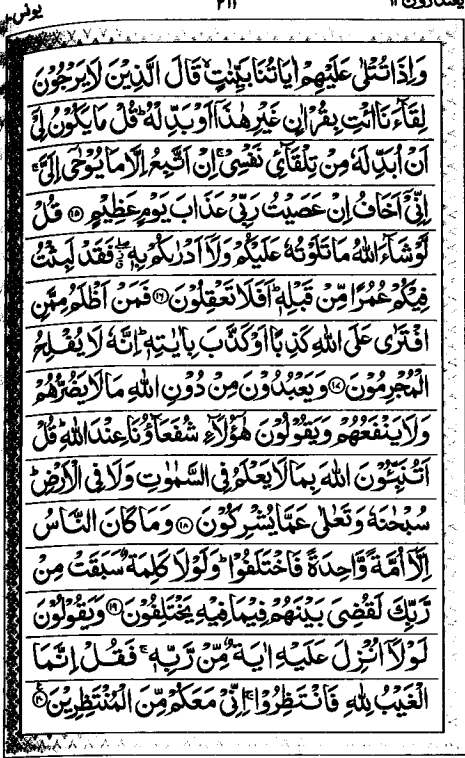 یعتذرون ۱۱ ۲۱۱ یونس ۱۰
وَاِذَا تُتْلٰى عَلَيْهِمْ اٰيَاتُنَا بَيِّنٰتٍ ۙ قَالَ الَّذِيْنَ لَا يَرْجُوْنَ
لِقَآءَنَا ائْتِ بِقُرْاٰنٍ غَيْرِ هٰذَاۤ اَوْ بَدِّلْهُ ؕ قُلْ مَا يَكُوْنُ لِىْۤ
اَنْ اُبَدِّلَهٗ مِنْ تِلْقَآئِ نَفْسِىْ ۚ اِنْ اَتَّبِعُ اِلَّا مَا يُوْحٰۤى اِلَىَّ ۚ
اِنِّىْۤ اَخَافُ اِنْ عَصَيْتُ رَبِّىْ عَذَابَ يَوْمٍ عَظِيْمٍ ۝۱۵ قُلْ
لَّوْ شَآءَ اللّٰهُ مَا تَلَوْتُهٗ عَلَيْكُمْ وَلَاۤ اَدْرٰىكُمْ بِهٖ ۖ فَقَدْ لَبِثْتُ
فِيْكُمْ عُمُرًا مِّنْ قَبْلِهٖ ؕ اَفَلَا تَعْقِلُوْنَ ۝۱۶ فَمَنْ اَظْلَمُ مِمَّنِ
افْتَرٰى عَلَى اللّٰهِ كَذِبًا اَوْ كَذَّبَ بِاٰيٰتِهٖ ؕ اِنَّهٗ لَا يُفْلِحُ
الْمُجْرِمُوْنَ ۝۱۷ وَيَعْبُدُوْنَ مِنْ دُوْنِ اللّٰهِ مَا لَا يَضُرُّهُمْ
وَلَا يَنْفَعُهُمْ وَيَقُوْلُوْنَ هٰۤؤُلَآءِ شُفَعَآؤُنَا عِنْدَ اللّٰهِ ؕ قُلْ
اَتُنَبِّـُٔوْنَ اللّٰهَ بِمَا لَا يَعْلَمُ فِى السَّمٰوٰتِ وَلَا فِى الْاَرْضِ ؕ
سُبْحٰنَهٗ وَتَعٰلٰى عَمَّا يُشْرِكُوْنَ ۝۱۸ وَمَا كَانَ النَّاسُ
اِلَّاۤ اُمَّةً وَّاحِدَةً فَاخْتَلَفُوْا ؕ وَلَوْلَا كَلِمَةٌ سَبَقَتْ مِنْ
رَّبِّكَ لَقُضِىَ بَيْنَهُمْ فِيْمَا فِيْهِ يَخْتَلِفُوْنَ ۝۱۹ وَيَقُوْلُوْنَ
لَوْلَاۤ اُنْزِلَ عَلَيْهِ اٰيَةٌ مِّنْ رَّبِّهٖ ۚ فَقُلْ اِنَّمَا
الْغَيْبُ لِلّٰهِ فَانْتَظِرُوْا ۚ اِنِّىْ مَعَكُمْ مِّنَ الْمُنْتَظِرِيْنَ ۝۲۰